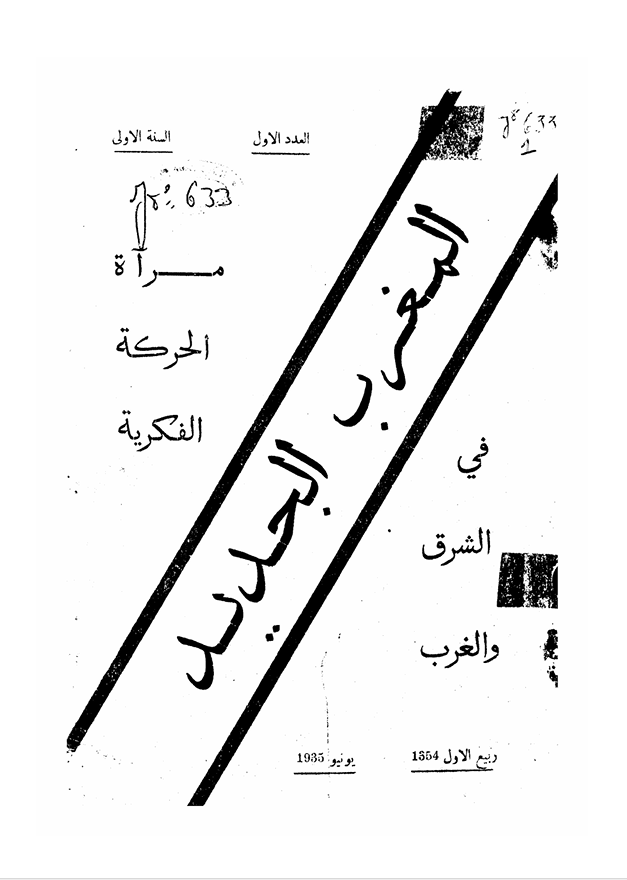 العدد الاول
السنة الاولى
№ 633
1
№ 633
المغرب الجديد
مرآة
الحركة
الفكرية
في
الشرق
والغرب
ربيع الاول 1354
يونيو 1935